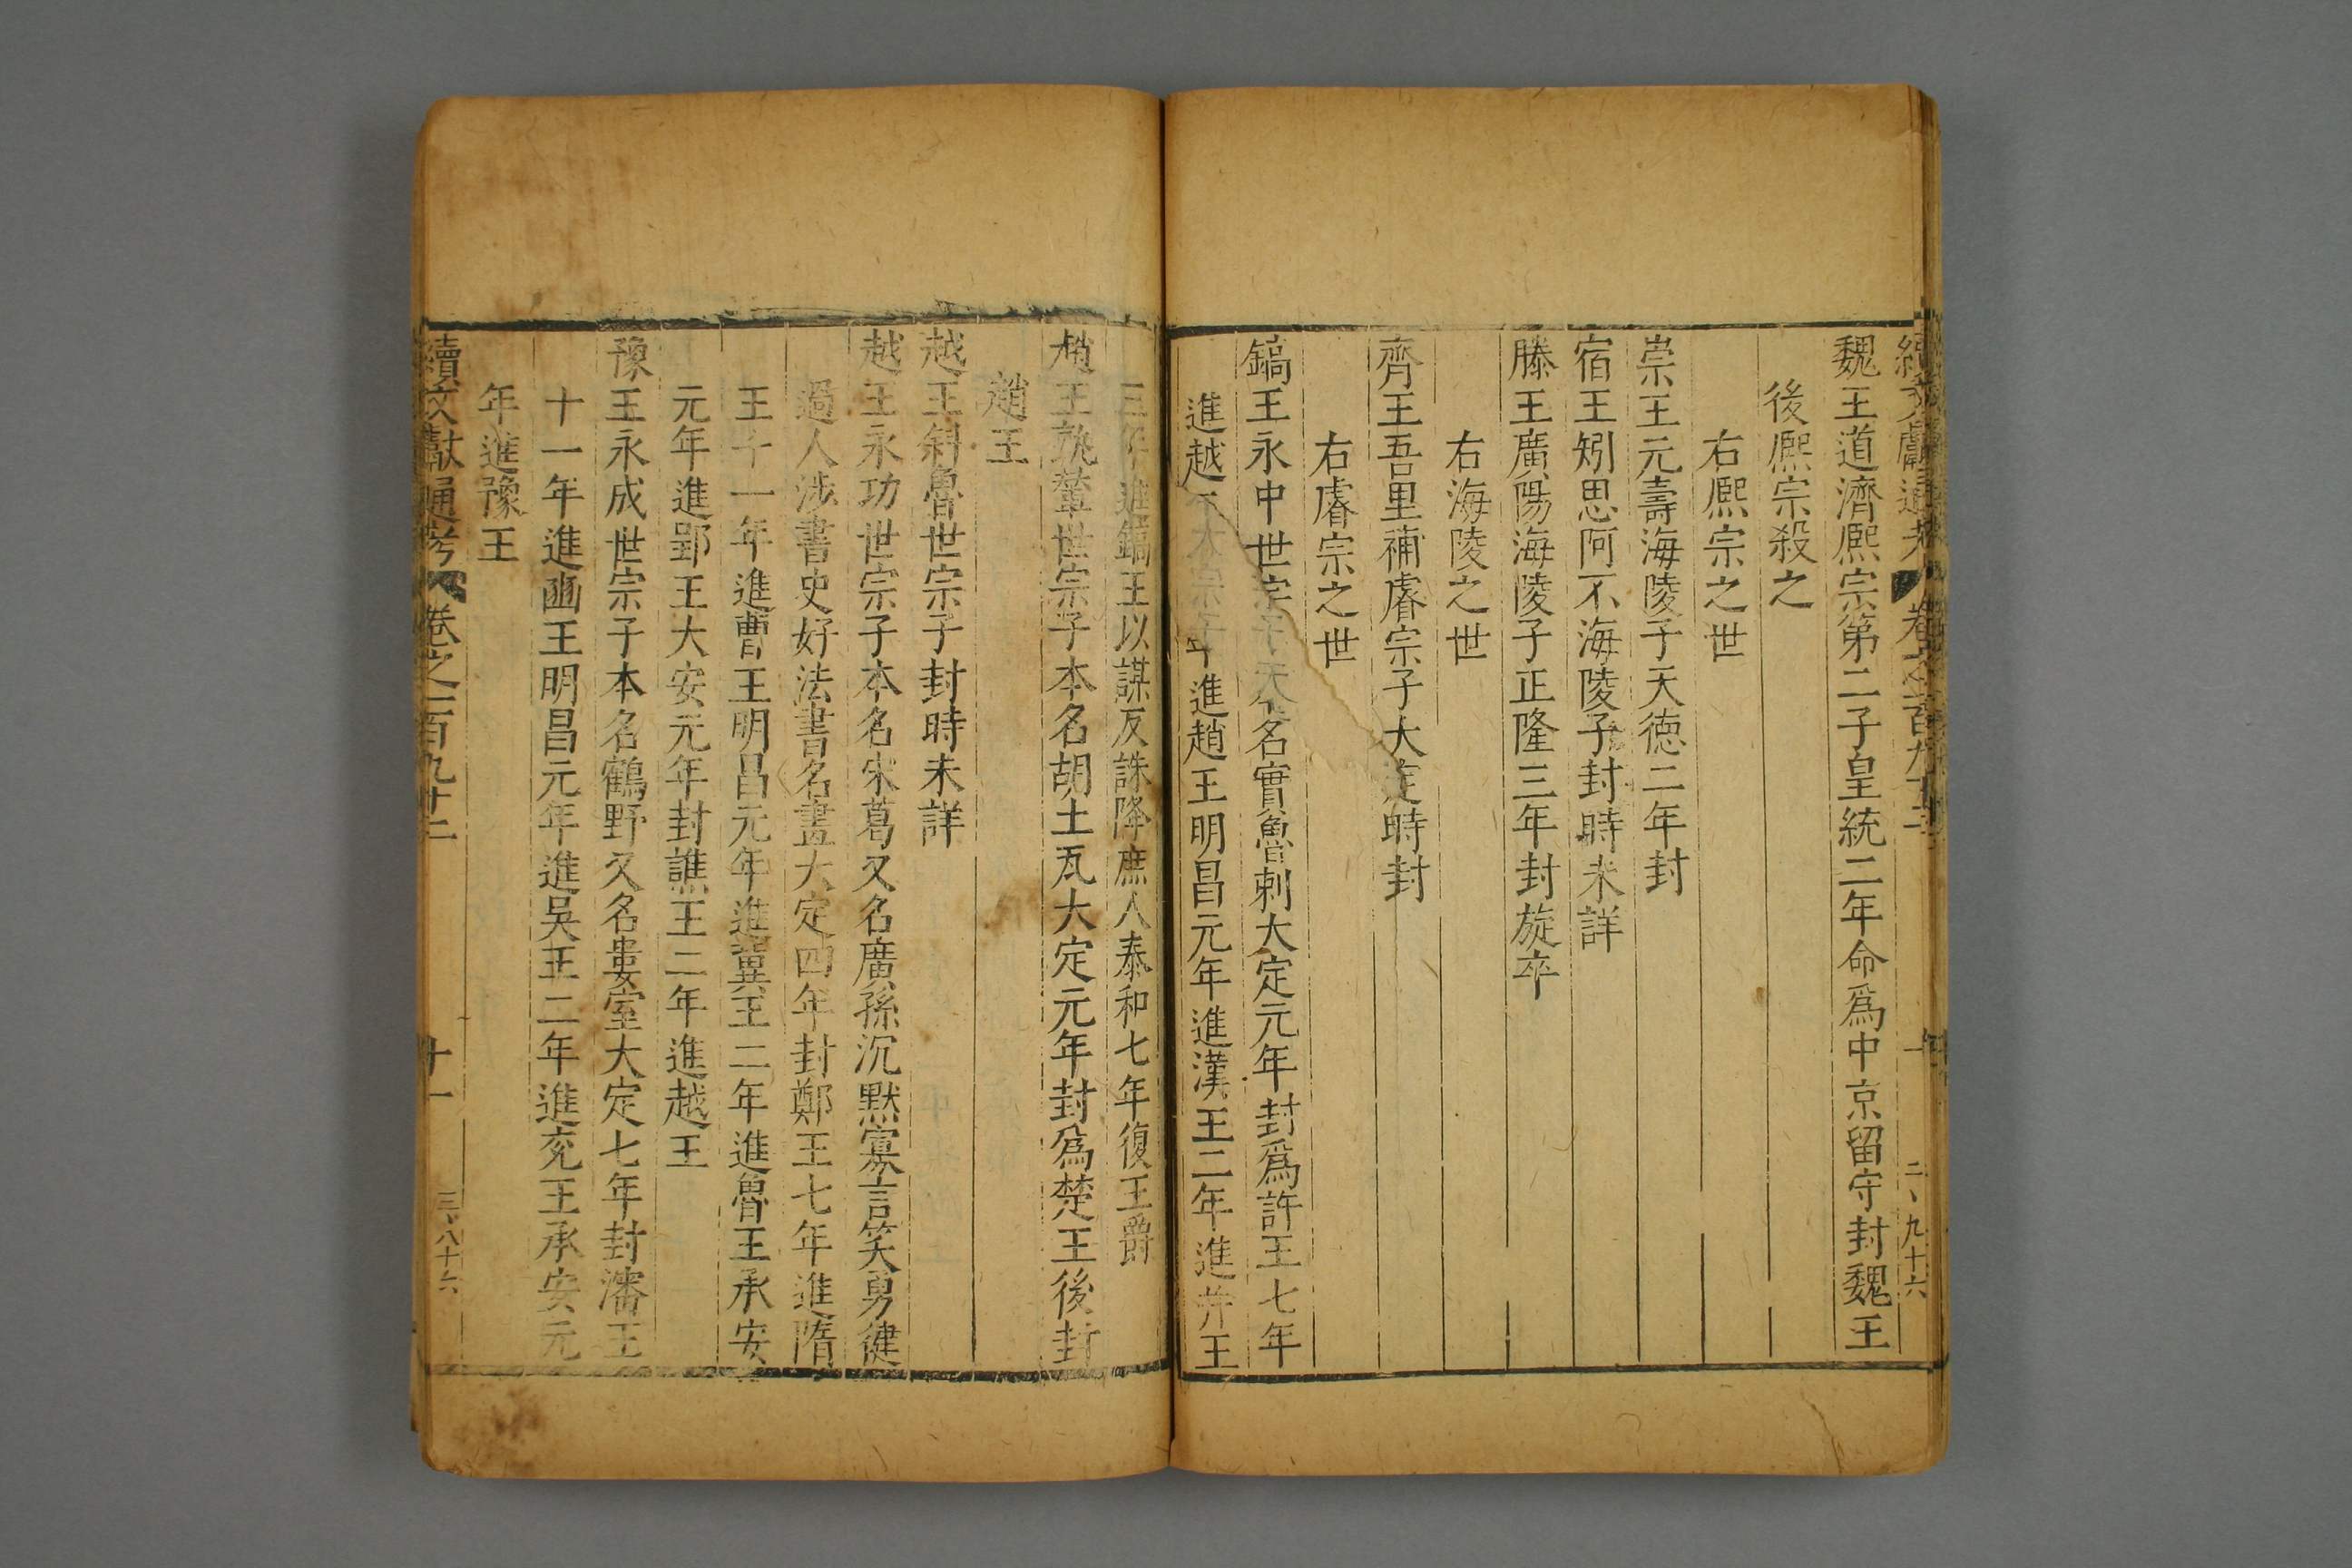 續文獻通考 卷之一百九十二
二、九十六
魏王道濟熈宗第二子皇統二年命爲中京留守封魏王
後熈宗殺之
右熈宗之世
崇王元壽海陵子天德二年封
宿王矧思阿不海陵子封時未詳
滕王廣陽海陵子正隆三年封旋卒
右海陵之世
齊王吾里補睿宗子大定時封
右睿宗之世
鎬王永中世宗子本名實魯剌大定元年封爲許王七年
進越王十一年進趙王明昌元年進漢王二年進并王
三年進鎬王以謀反誅降庶人泰和七年復王爵
趙王孰輦世宗子本名胡土瓦大定元年封爲楚王後封
趙王
越王斜魯世宗子封時未詳
越王永功世宗子本名宋葛又名廣孫沉默寡言笑勇健
過人涉書史好法書名畫大定四年封鄭王七年進隋
王十一年進曹王明昌元年進冀王二年進魯王承安
元年進郢王大安元年封譙王二年進越王
豫王永成世宗子本名鶴野又名婁室大定七年封瀋王
十一年進豳王明昌元年進吳王二年進兖王承安元
年進豫王
續文獻通考 卷之一百九十二
十一
三、八十六